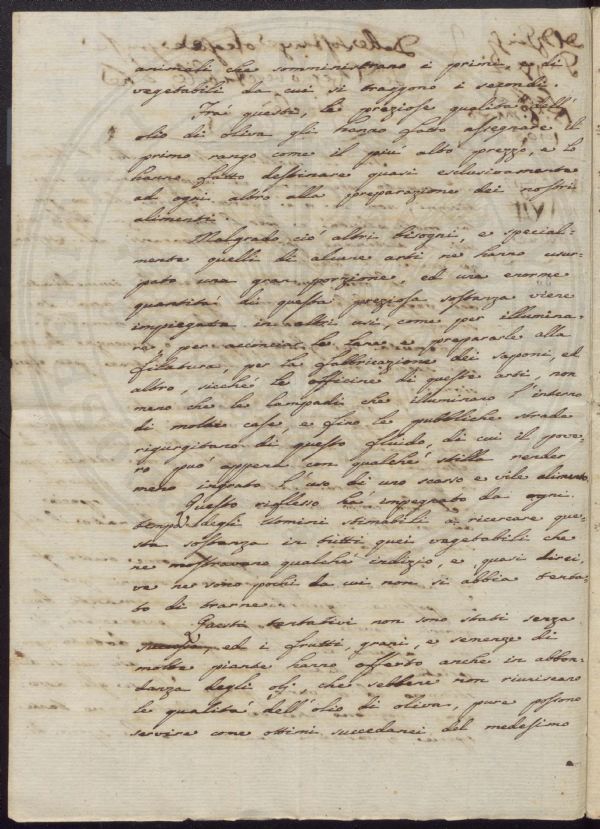 animali che somministrano i primi, e di
vegetabili da cui si traggono i secondi.
Trá queste, le preziose qualitá dell'
olio di oliva gli hanno fatto assegnare il
primo rango come il piú alto prezzo, e lo
hanno fatto destinare quasi esclusivamente
ad ogni altro alla preparazione dei nostri
alimenti.
Malgrado ció altri bisogni, e special-
mente quelli di alcune arti ne hanno usur-
pato una gran porzione, ed una enorme
quantitá di questa preziosa sostanza viene
impiegata in altri usi, come per illumina-
re, per acconciar le lane e prepararle alla
filatura, per la fabbricazione dei saponi, ed
altro, sicché le officine di queste arti, non
meno che le lampadi che illuminano l'interno
di molte case, e fino le pubbliche strade
rigurgitano di questo fluido, di cui il pove-
ro puó appena con qualché stilla render
meno ingrato l'uso di uno scarso e vile alimento.
Questo riflesso há impegnato da ogni
tempo degli uomini stimabili a ricercare que-
sta sostanza in tutti quei vegetabili che
ne mostravano qualché indizio, e quasi direi,
ve ne sono pochi da cui non si abbia tenta-
to di trarne.
Questi tentativi non sono stati senza
successo, ed i frutti, grani, e semenze di
molte piante hanno offerto anche in abbon-
danza degli olj che sebbene non riuniscano
le qualitá dell'olio di oliva, pure possono
servire come ottimi succedanei del medesimo